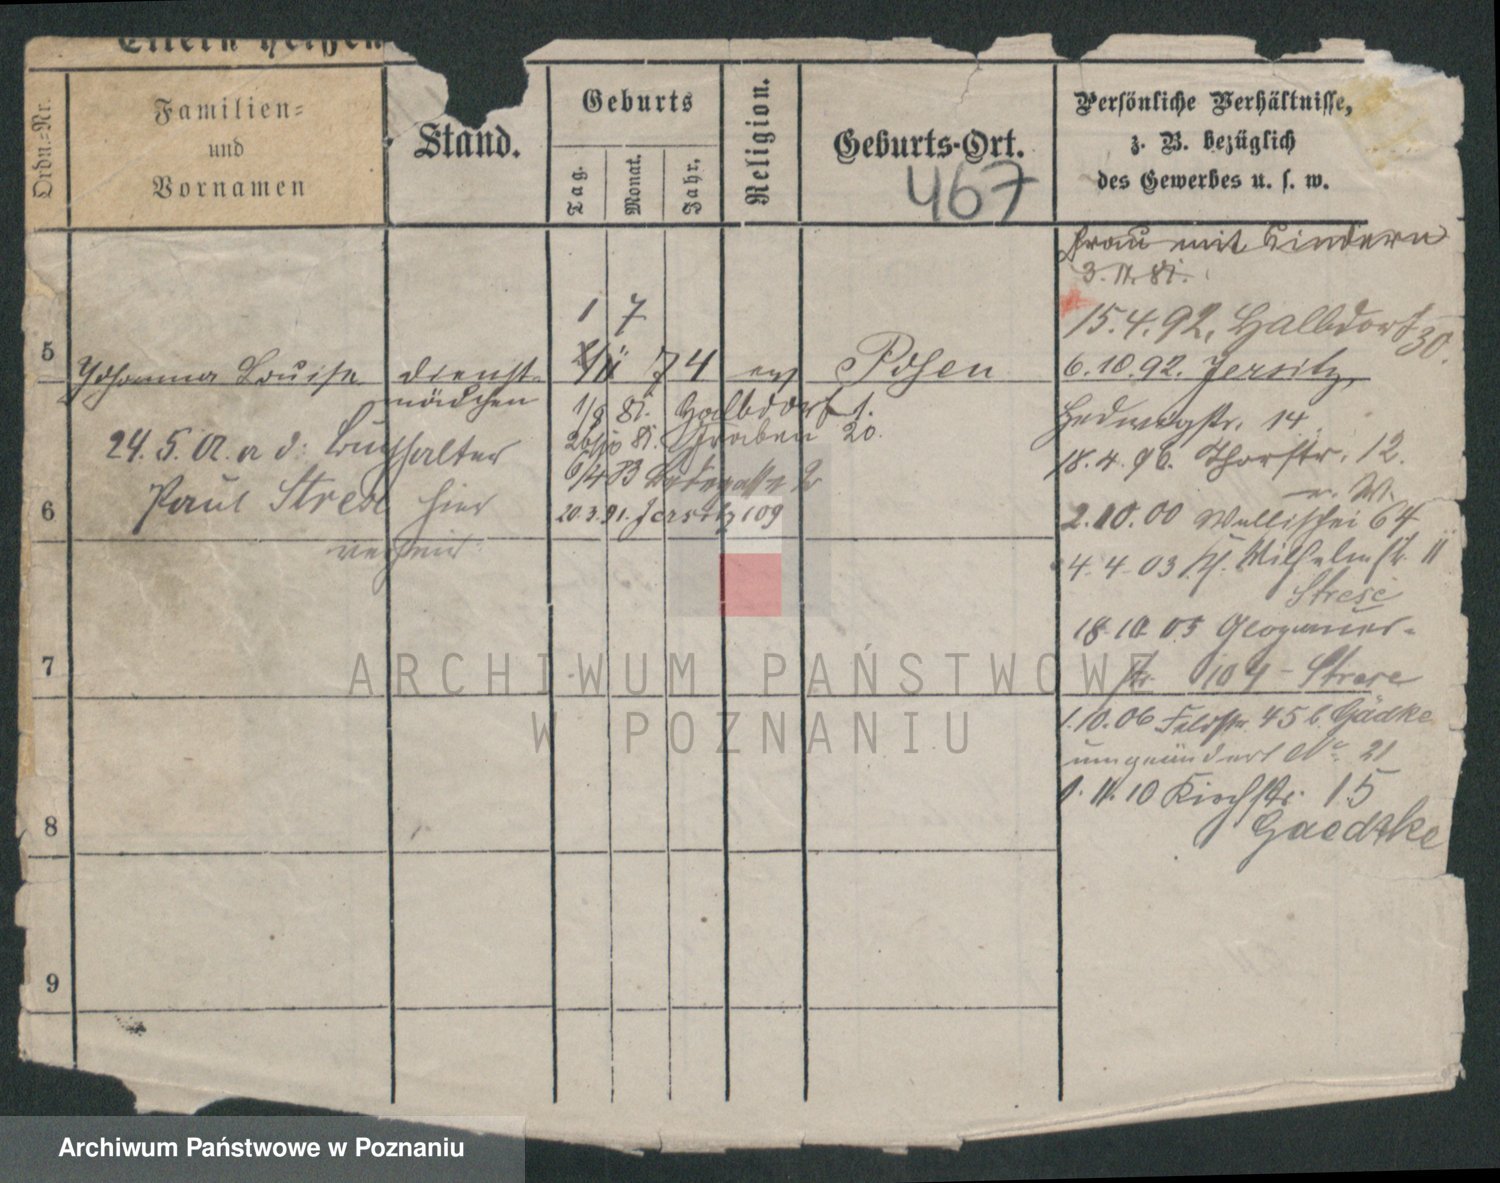 Eltern heißen
Ordn.-Nr.
Familien-
und
Vornamen
Stand.
Geburts
Tag.
Monat.
Jahr.
Religion.
Geburts-Ort.
467
Persönliche Verhältnisse,
z. B. bezüglich
des Gewerbes u. s. w.
Frau mit Kindern
3. 11. 81.
1 7
15. 4. 92. Halbdorfst 30.
5 Johanna Louise dienst- 74 ev Posen
mädchen
6. 10. 92. Jersitz,
1/9 81. Halbdorfst.
Hedwigstr. 14
24. 5. a d: Buchhalter
81. Graben 20.
18. 4. 96. Thorstr. 12.
6 Paul Strese hier
20. 3. 91. Jersitz 109
2. 10. 00 Wallischei 64
4. 4. 03 Wilhelmstr. 11
Strese
18. 10 05 Glogauer-
7 str. 104 - Strese
1. 10. 06 Feldstr. 45 b. Gädke
umgeändert No. 21
1. 11. 10 Kirchstr. 15
8 Gaedtke
9
ARCHIWUM PAŃSTWOWE
W POZNANIU
Archiwum Państwowe w Poznaniu